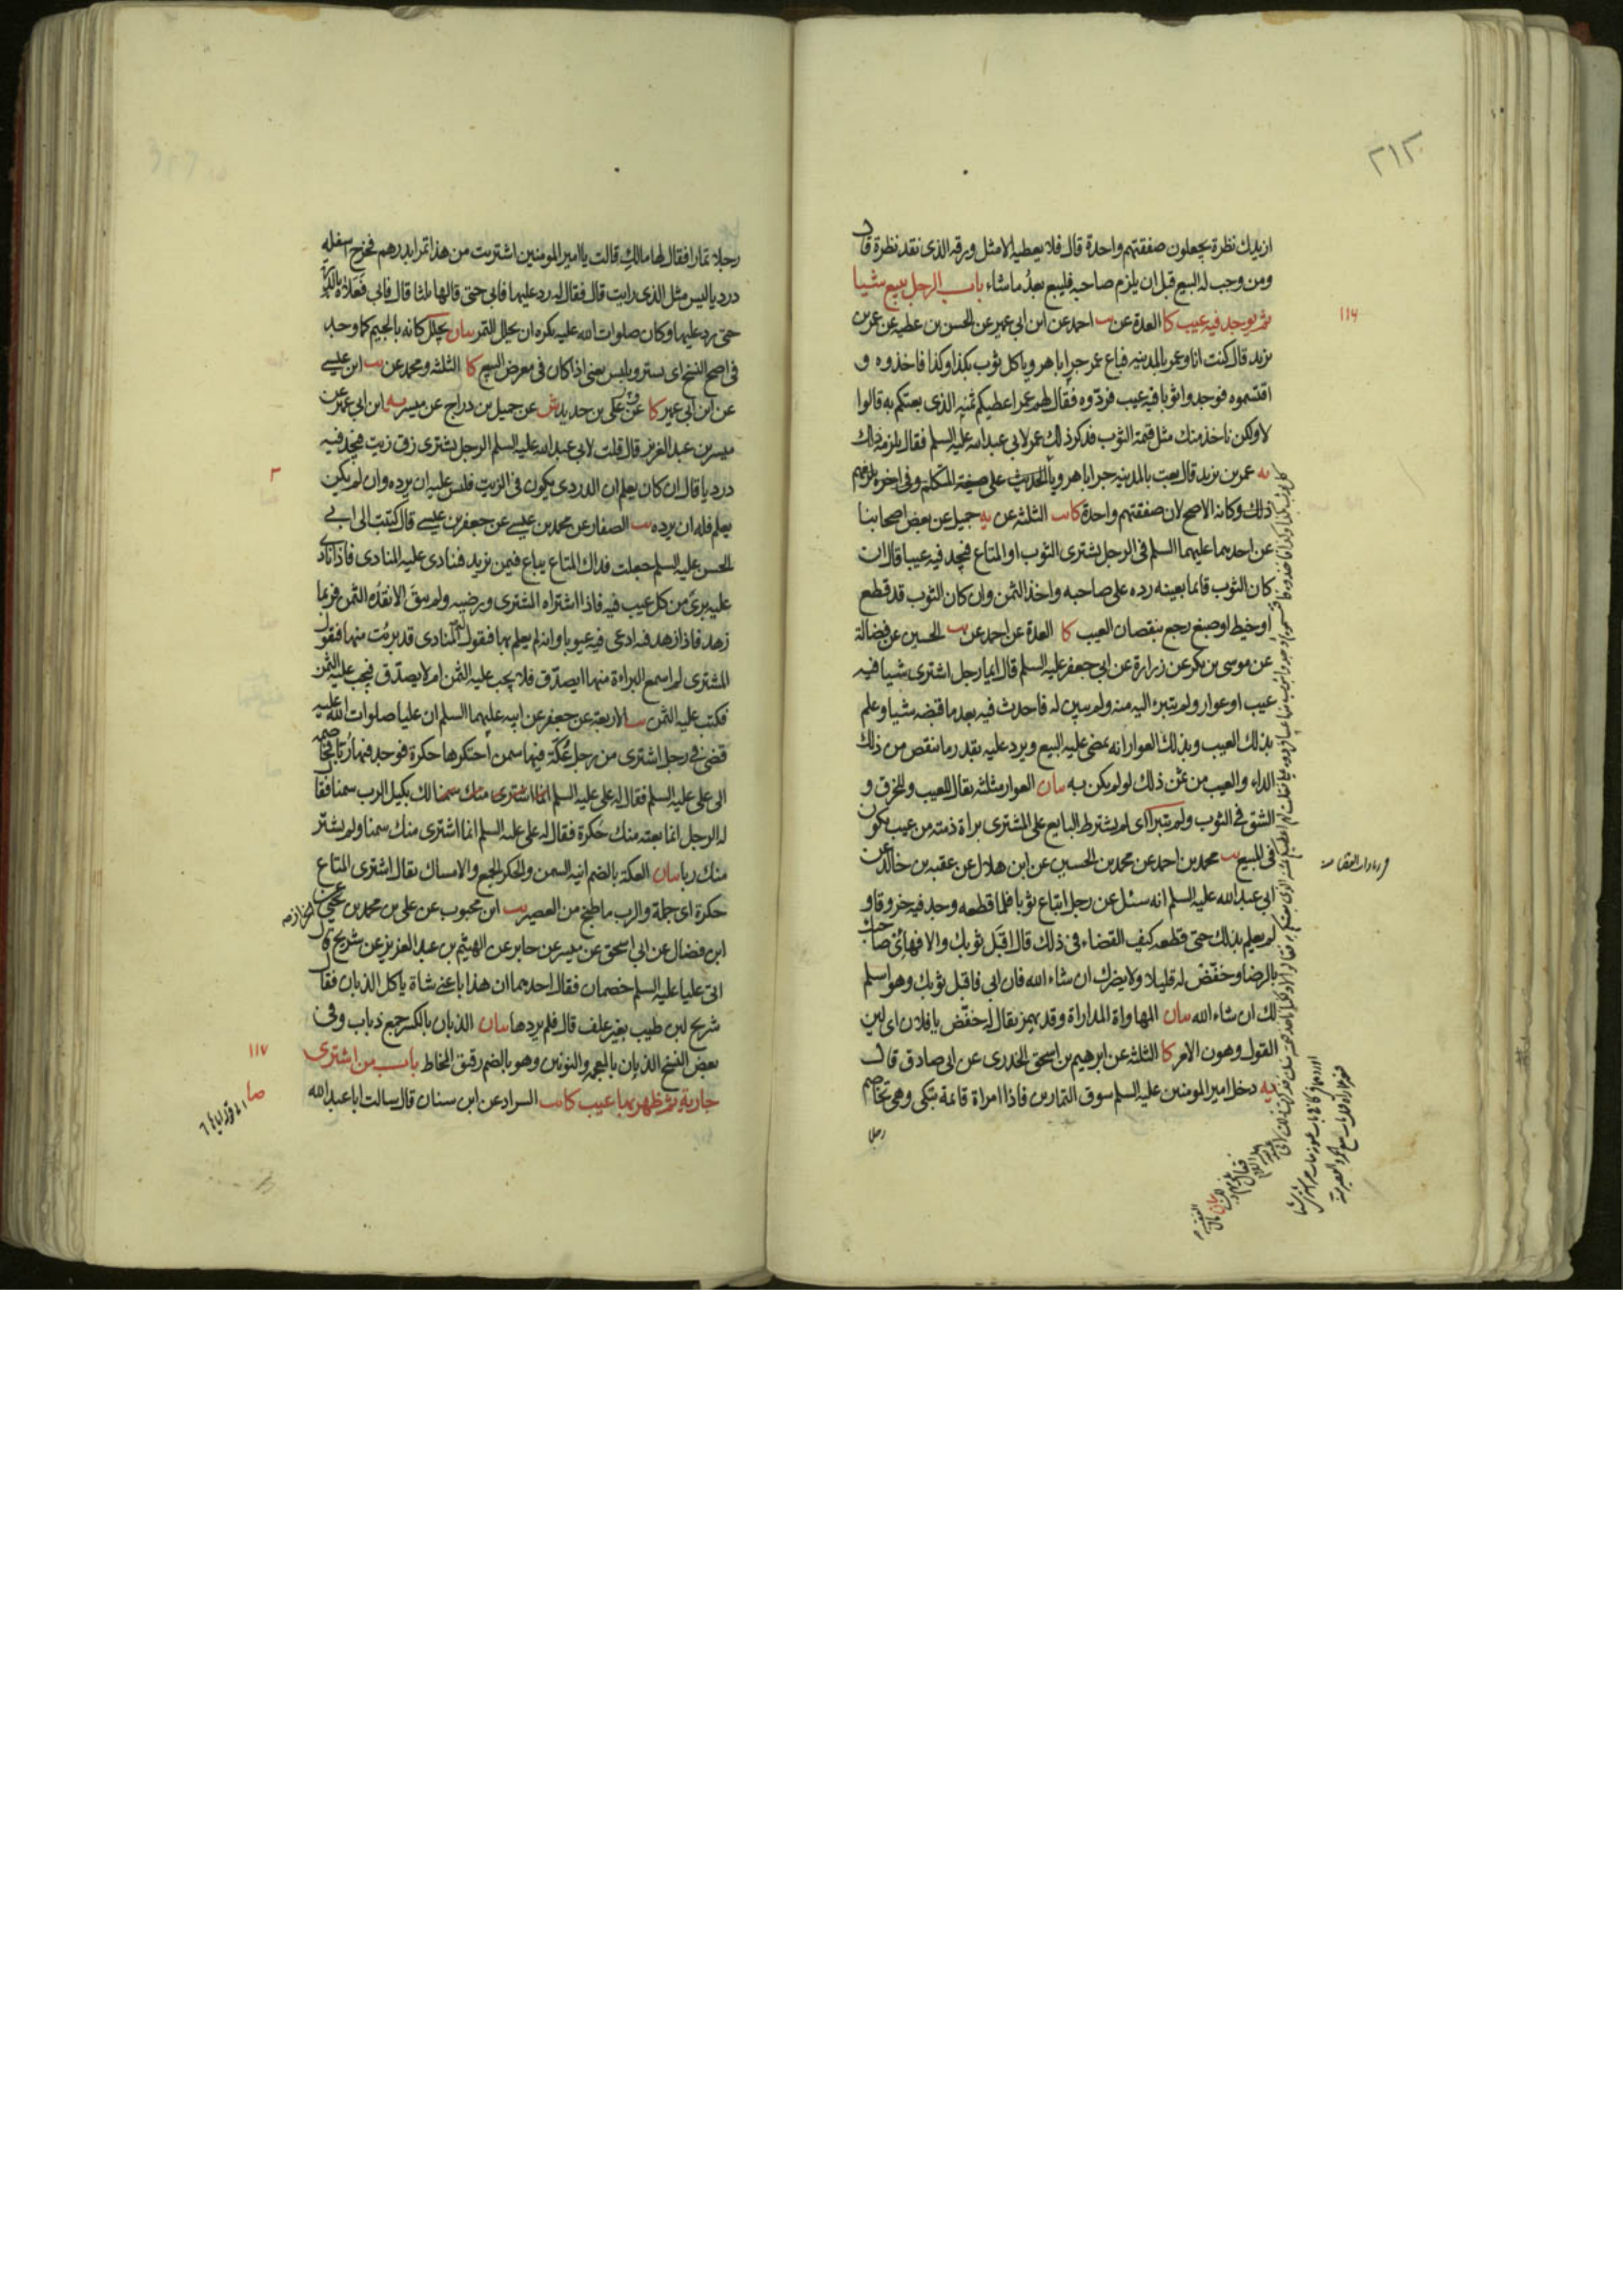 ٢١٢
ازيدك نظرة يجعلون صفقتهم واحدة قال فلا يعطيه الا مثل ورقه الذى نقد نظرة قال
ومن وجب له البيع قبل ان يلزم صاحبه فليبع بعدُ ما شاء باب الرجل يبيع شيئا
ثم يوجد فيه عيب كا العدة عن احمد عن ابن ابى عمير عن الحسن بن عطيه عن عمر بن
يزيد قال كنت انا وعمر بالمدينه فباع عمر جرابا هرويا كل ثوب بكذا وكذا فاخذوه و
اقتسموه فوجدوا ثوبا فيه عيب فردّوه فقال لهم عمر اعطيكم ثمنه الذى بعتكم به قالوا
لا ولكن ناخذ منك مثل قيمة الثوب فذكر ذلك عمر لابى عبد الله عليه السلم فقال يلزمه ذلك
يه عمر بن يزيد قال بعت بالمدينه جرابا هرويا الحديث على صيغة المتكلم وفى اخره يلزمهم
ذلك وكانه الاصح لان صفقتهم واحدة كا يب الثلثه عن يه جميل عن بعض اصحابنا
عن احدهما عليهما السلم فى الرجل يشترى الثوب او المتاع فيجد فيه عيبا قال ان
كان الثوب قائما بعينه رده على صاحبه واخذ الثمن وان كان الثوب قد قطع
او خيط او صبغ رجع بنقصان العيب كا العدة عن احمد عن يب الحسين عن فضالة
عن موسى بن بكر عن زرارة عن ابى جعفر عليه السلم قال ايما رجل اشترى شيئا فيه
عيب او عوار ولم يتبرء اليه منه ولم يبين له فاحدث فيه بعد ما قبضه شيئا وعلم
بذلك العيب وبذلك العوار انه يمضى عليه البيع ويرد عليه بقدر ما ينقص من ذلك
الداء والعيب من ثمن ذلك لو لم يكن به بيان العوار مثلثه يقال للعيب والخرق و
الشق فى الثوب ولم يتبرا اى لم يشترط البايع على المشترى براة ذمته من عيب يكون
فى المبيع يب محمد بن احمد عن محمد بن الحسين عن ابن هلال عن عقبه بن خالد عن
ابى عبد الله عليه السلم انه سئل عن رجل ابتاع ثوبا فلما قطعه وجد فيه خروقا و
لم يعلم بذلك حتى قطعه كيف القضاء فى ذلك قال اقبَل ثوبك والا فهايئ صاحبك
بالرضا وخفّض له قليلا ولا يضرك ان شاء الله فان ابى فاقبل ثوبك وهو اسلم
لك ان شاء الله بيان المهاواة المداراة وقد يهمز يقال له خفّض يا فلان اى لين
القول وهون الامر كا الثلثه عن ابرهيم بن اسحق الخدرى عن ابى صادق قال
يه دخل امير المومنين عليه السلم سوق التمارين فاذا امراة قائمة تبكى وهى تخاصم
رجلا
١١٦
رجلا تمارا فقال لها مالكِ قالت يا امير المومنين اشتريت من هذا تمرا بدرهم فخرج اسفله
رديا ليس مثل الذى رايت قال فقال له رد عليها فابى حتى قالها ثلثا قال فابى فعلاه بالدرة
حتى رد عليها وكان صلوات الله عليه يكره ان يجلل التمر بيان يجلل كانه بالجيم كما وجد
فى اصح النسخ اى يستر ويلبس يعنى اذا كان فى معرض البيع كا الثلثه ومحمد عن يب ابن عيسى
عن ابن ابى عمير كا عن على بن حديد ش عن جميل بن دراج عن ميسر يه ابن ابى عمير عن
ميسر بن عبد العزيز قال قلت لابى عبد الله عليه السلم الرجل يشترى زق زيت فيجد فيه
درديا قال ان كان يعلم ان الدردى يكون فى الزيت فليس عليه ان يرده وان لم يكن
يعلم فله ان يرده يب الصفار عن محمد بن عيسى عن جعفر بن عيسى قال كتبت الى ابى
الحسن عليه السلم جعلت فداك المتاع يباع فيمن يزيد فينادى عليه المنادى فاذا نادى
عليه برئ من كل عيب فيه فاذا اشتراه المشترى ورضيه ولم يبق الا نقده الثمن فربما
زهد فاذا زهد فيه ادعى فيه عيوبا وانه لم يعلم بها فيقول له المنادى قد برئت منها فيقول
المشترى لم اسمع البراءة منها ايصدّق فلا يجب عليه الثمن ام لا يصدّق فيجب عليه الثمن
فكتب عليه الثمن يب الاربعة عن جعفر عن ابيه عليهما السلم ان عليا صلوات الله عليه
قضى فى رجل اشترى من رجل عُكّة فيها سمن احتكرها حكرة فوجد فيها رُبّا فخاصمه
الى على عليه السلم فقال له على عليه السلم انما اشترى منك سمنا لك بكيل الرب سمنا فقال
له الرجل انما بعته منك حُكرة فقال له على عليه السلم انما اشترى منك سمنا ولم يشتر
منك ربا بيان العكة بالضم انية السمن والحكر الجمع والامساك يقال اشترى المتاع
حكرة اى جملة والرب ما طبخ من العصير يب ابن محبوب عن على بن محمد بن يحيى الخزاز عن
ابن فضال عن ابى اسحق عن ميسر عن جابر عن الهيثم بن عبد العزيز عن شريح قال
اتى عليا عليه السلم خصمان فقال احدهما ان هذا باعنى شاة ياكل الذبان فقال
شريح لبن طيب بغير علف قال فلم يردها بيان الذبان بالكسر جمع ذباب وفى
بعض النسخ الذيان بالمعجمه والنونين وهو بالضم رقيق المخاط باب من اشترى
جارية ثم ظهر بها عيب كا يب السراد عن ابن سنان قال سالت ابا عبد الله
١١٧